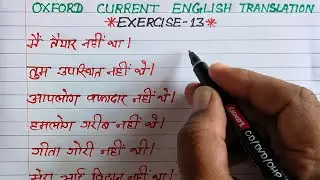 OXFORD CURRENT ENGLISH TRANSLATION
*EXERCISE-13*
मैं तैयार नहीं था।
तुम उपस्थित नहीं थे।
आपलोग वफादार नहीं थे।
हमलोग गरीब नहीं थे।
गीता गोरी नहीं थी।
मेरा भाई विद्वान नहीं था।
CD/DVD/OHP